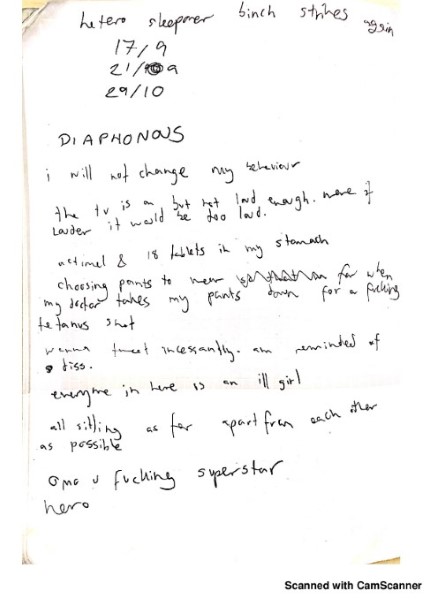 hetero sleepover binch strikes again
17/9
21/9
29/10
DIAPHONOUS
i will not change my behaviour
the tv is on but not loud enough. were it
louder it would be too loud.
actimel & 18 tablets in my stomach
choosing pants to wear for when
my doctor takes my pants down for a fucking
tetanus shot
wanna tweet incessantly. am reminded of
diss.
everyone in here is an ill girl
all sitting as far apart from each other
as possible
omg u fucking superstar
hero
Scanned with CamScanner